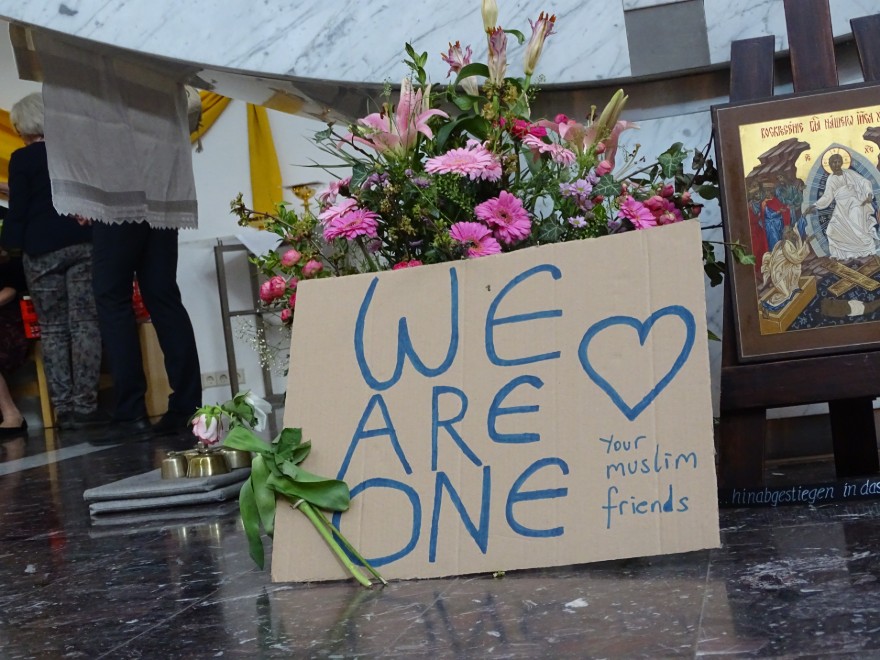 WE
ARE
ONE
Your
muslim
friends
hinabgestiegen in das